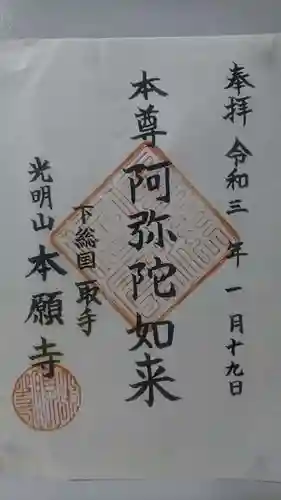 奉拝 令和三年一月十九日
本尊 阿弥陀如来
下総国取手
光明山 本願寺